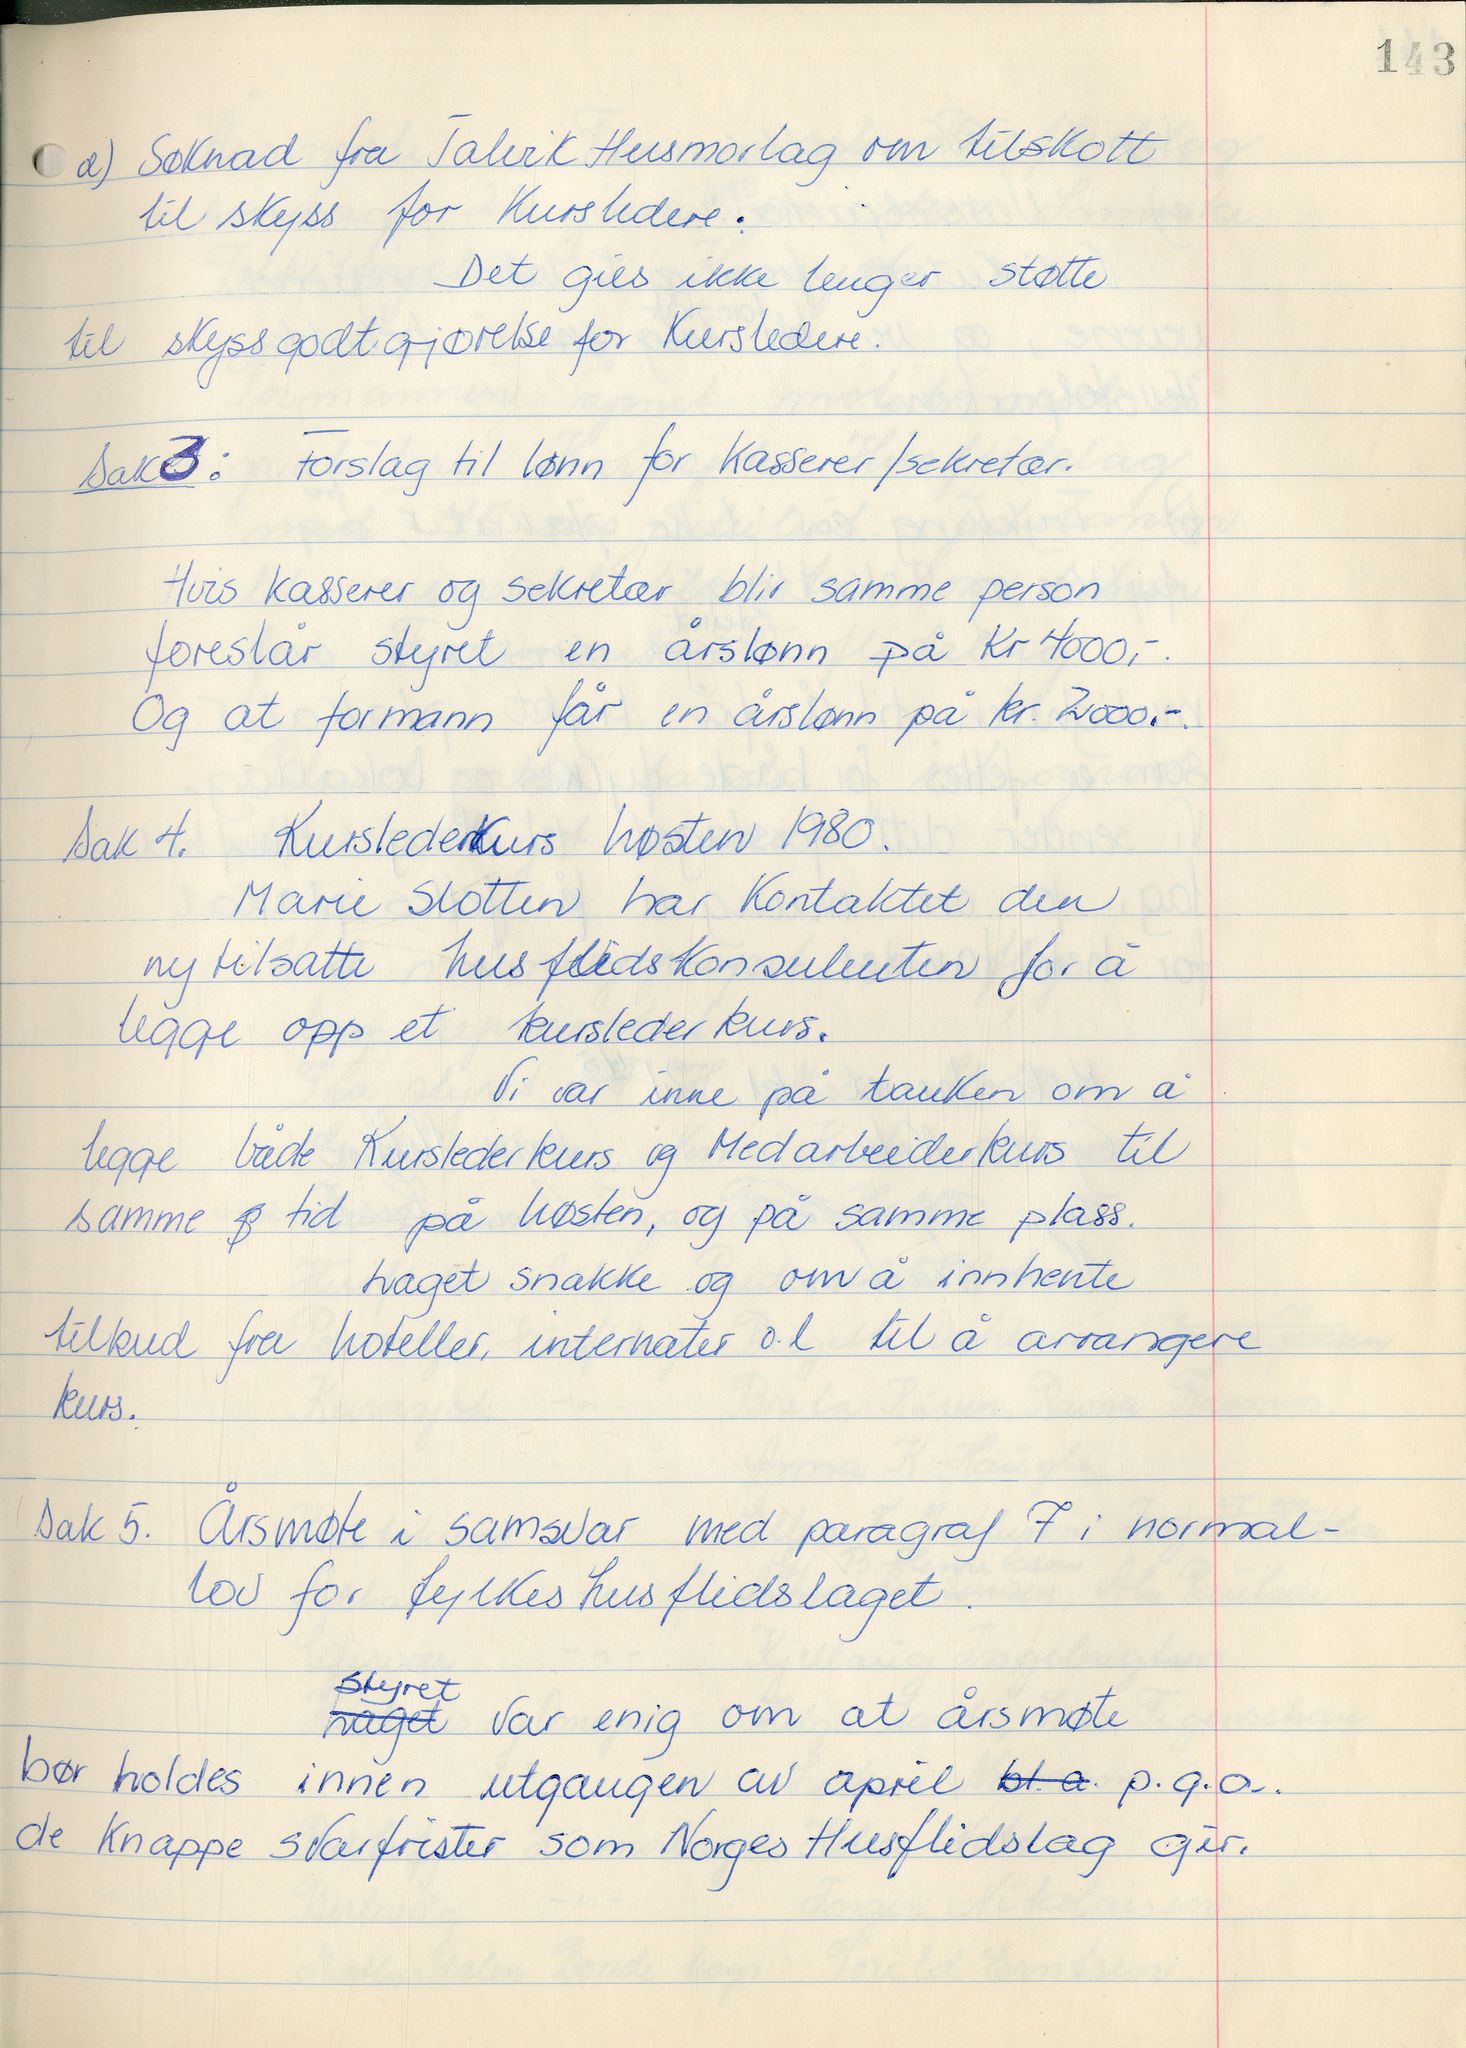 143
d) Søknad fra Talvik Husmorlag om tilskott
til skyss for Kursledere.
Det gies ikke lenger støtte
til skyssgodtgjørelse for Kursledere.
Sak 3: Forslag til lønn for Kasserer/sekretær.
Hvis kasserer og sekretær blir samme person
foreslår styret en årslønn på Kr 4000,-.
Og at formann får en årslønn på kr. 2000.-.
Sak 4. Kurslederkurs høsten 1980.
Marie Slotten har Kontaktet den
nytilsatte husflidskonsulenten for å
legge opp et kurslederkurs.
Vi var inne på tanken om å
legge både Kurslederkurs og Medarbeiderkurs til
samme tid på høsten, og på samme plass.
Laget snakke og om å innhente
tilbud fra hoteller, internater o.l til å arrangere
kurs.
Sak 5. Årsmøte i samsvar med paragraf 7 i normal-
lov for fylkeshusflidslaget.
styret
Laget var enig om at årsmøte
bør holdes innen utgangen av april bl.a. p.g.a.
de Knappe svarfrister som Norges Husflidslag gir.